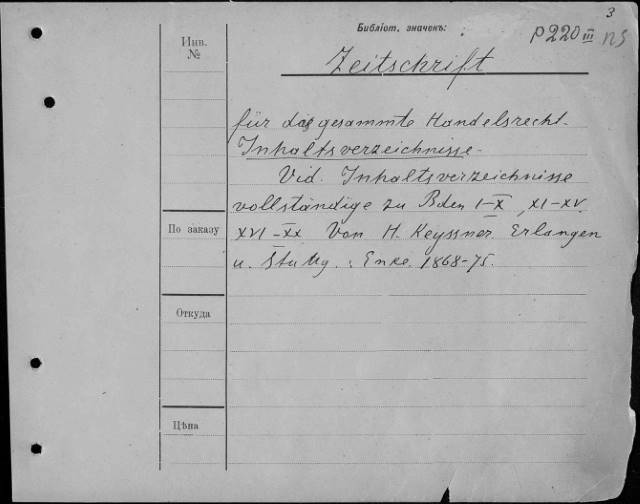 3
Библіот. значекъ:
p 220 III
Инв.
№
Zeitschrift
für das gesammte Handelsrecht.
Inhaltsverzeichnisse.
Vid. Inhaltsverzeichnisse
vollständige zu Bden I-X, XI-XV.
По заказу
XVI-XX. Von H. Keyssner. Erlangen
u. Stuttg.: Enke. 1868-75.
Откуда
Цѣна